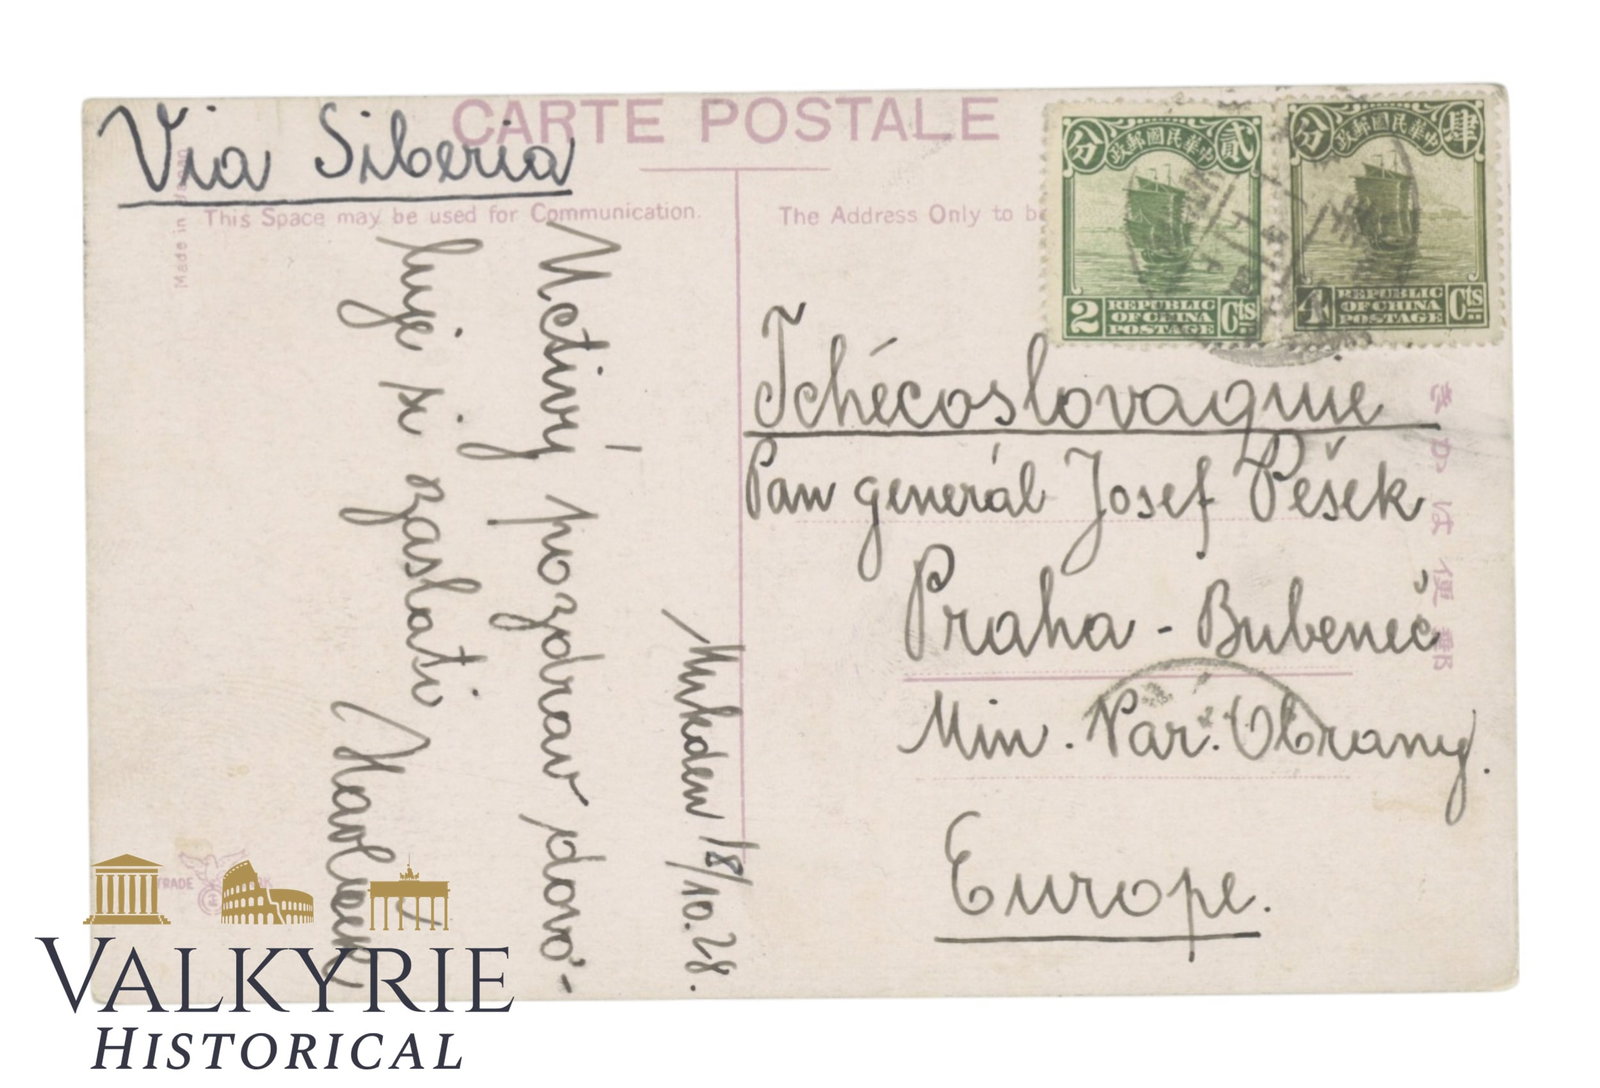 Via Siberia
CARTE POSTALE
Made in Japan
This Space may be used for Communication.
The Address Only to be
分 中華民國郵政 貳
2 REPUBLIC OF CHINA POSTAGE Cts
分 中華民國郵政 肆
4 REPUBLIC OF CHINA POSTAGE Cts
Tchécoslovaquie
Pan generál Josef Pešek
Praha - Bubeneč
Min. Nár. Obrany.
Europe.
きかは便郵
Mukden 18/10.28.
Uctivý pozdrav dovo-
luji si zaslati
TRADE
VALKYRIE
HISTORICAL